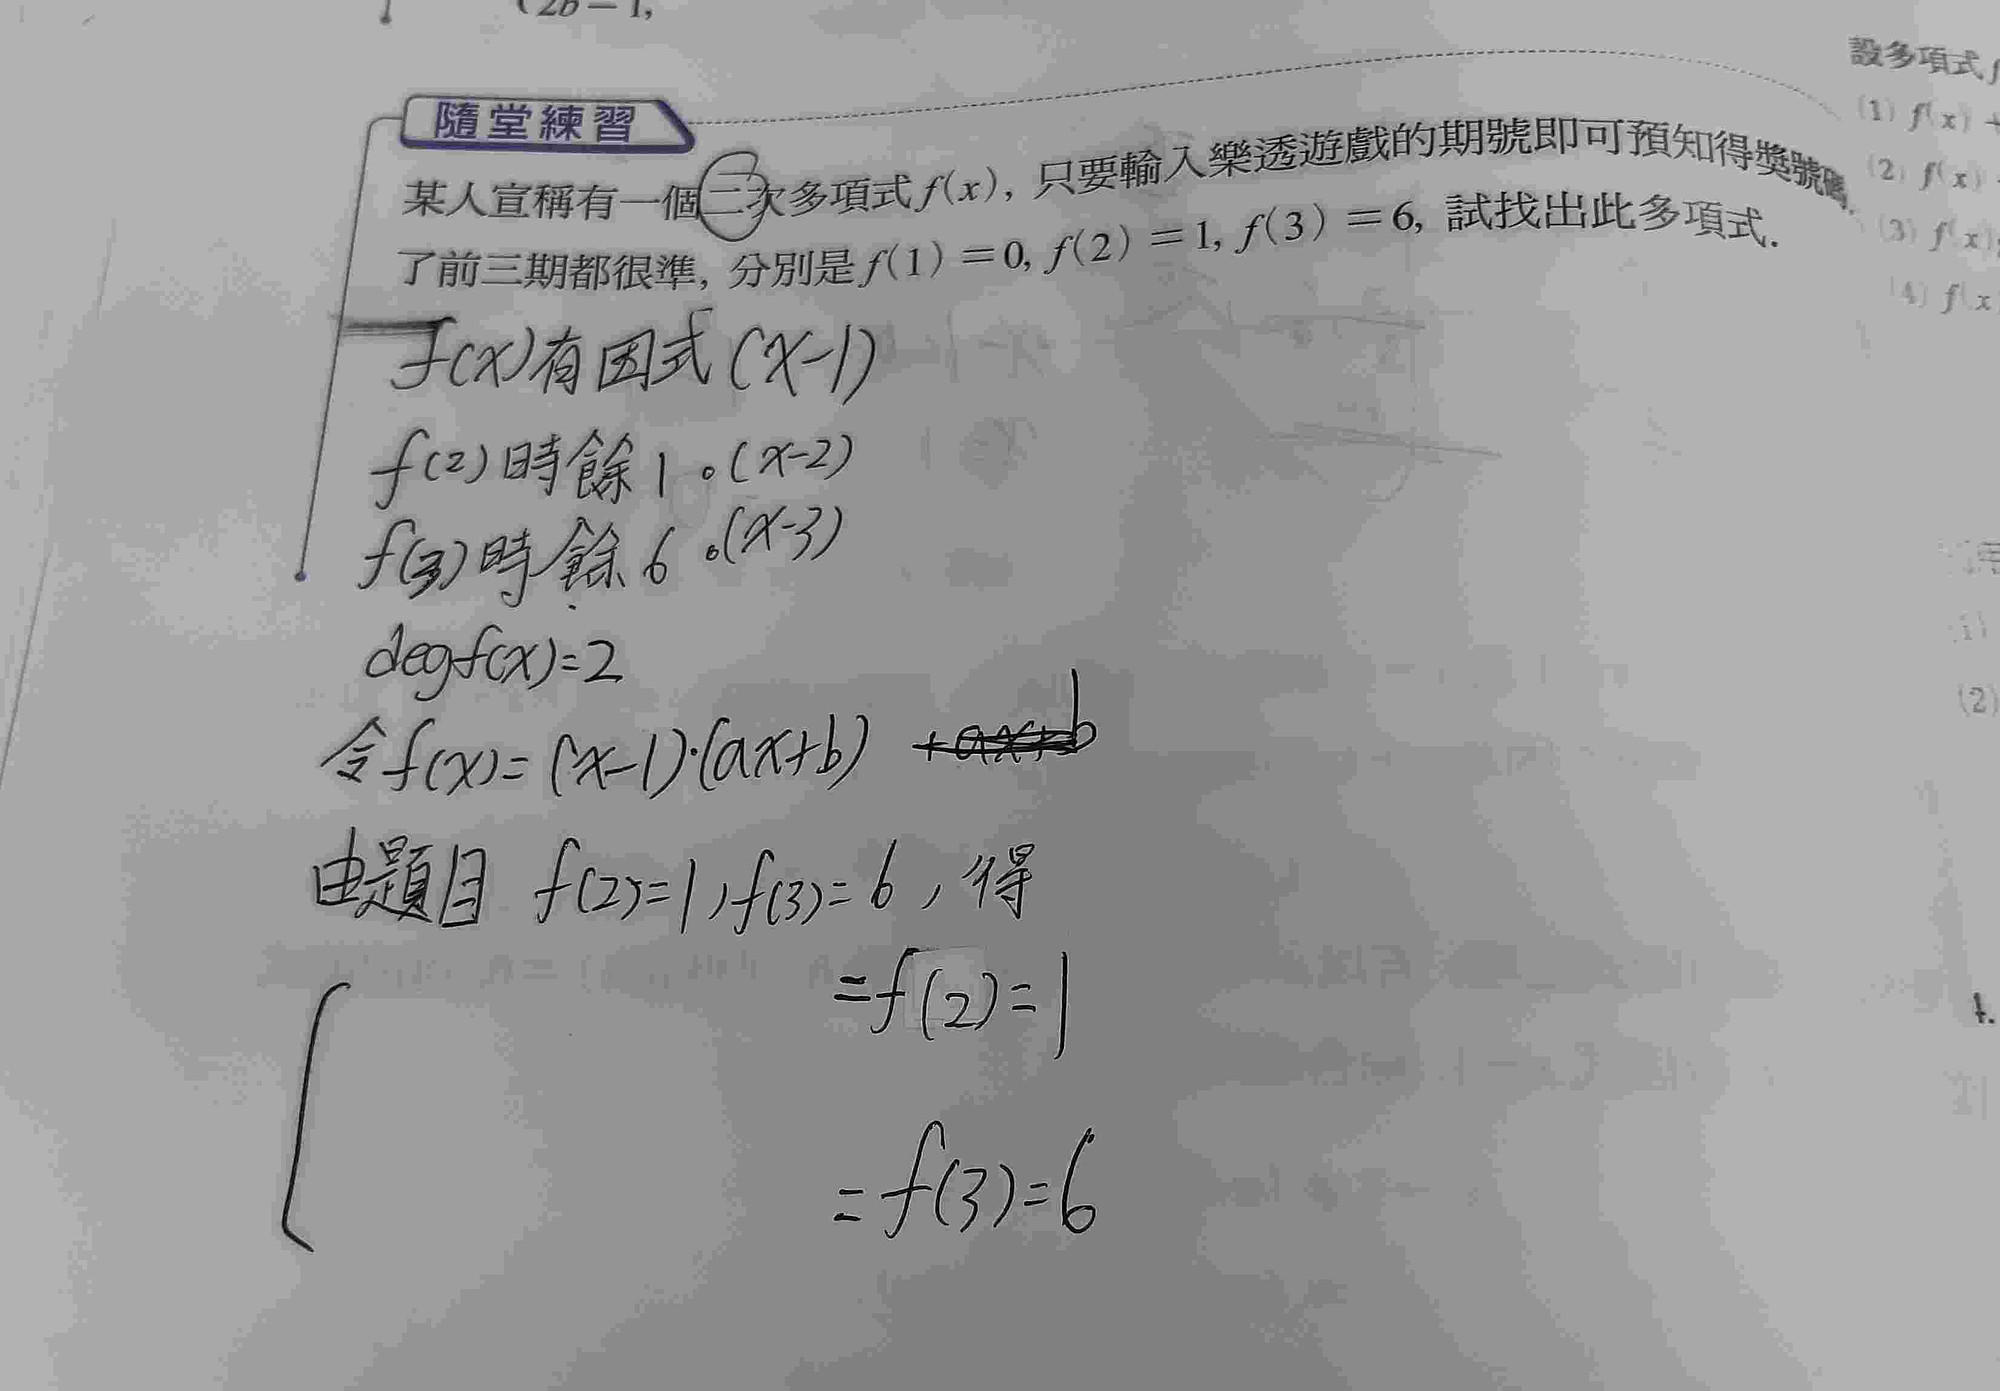 (2b－1,
隨堂練習
某人宣稱有一個二次多項式 f(x), 只要輸入樂透遊戲的期號即可預知得獎號碼.
了前三期都很準, 分別是 f(1)＝0, f(2)＝1, f(3)＝6, 試找出此多項式.
f(x)有因式(x-1)
f(2)時餘1。(x-2)
f(3)時餘6。(x-3)
degf(x)=2
令f(x)=(x-1)·(ax+b) +ax+b
由題目 f(2)=1,f(3)=6,得
=f(2)=1
=f(3)=6
設多項式 f
(1) f(x) +
(2) f(x)
(3) f(x)
(4) f(x
(2)